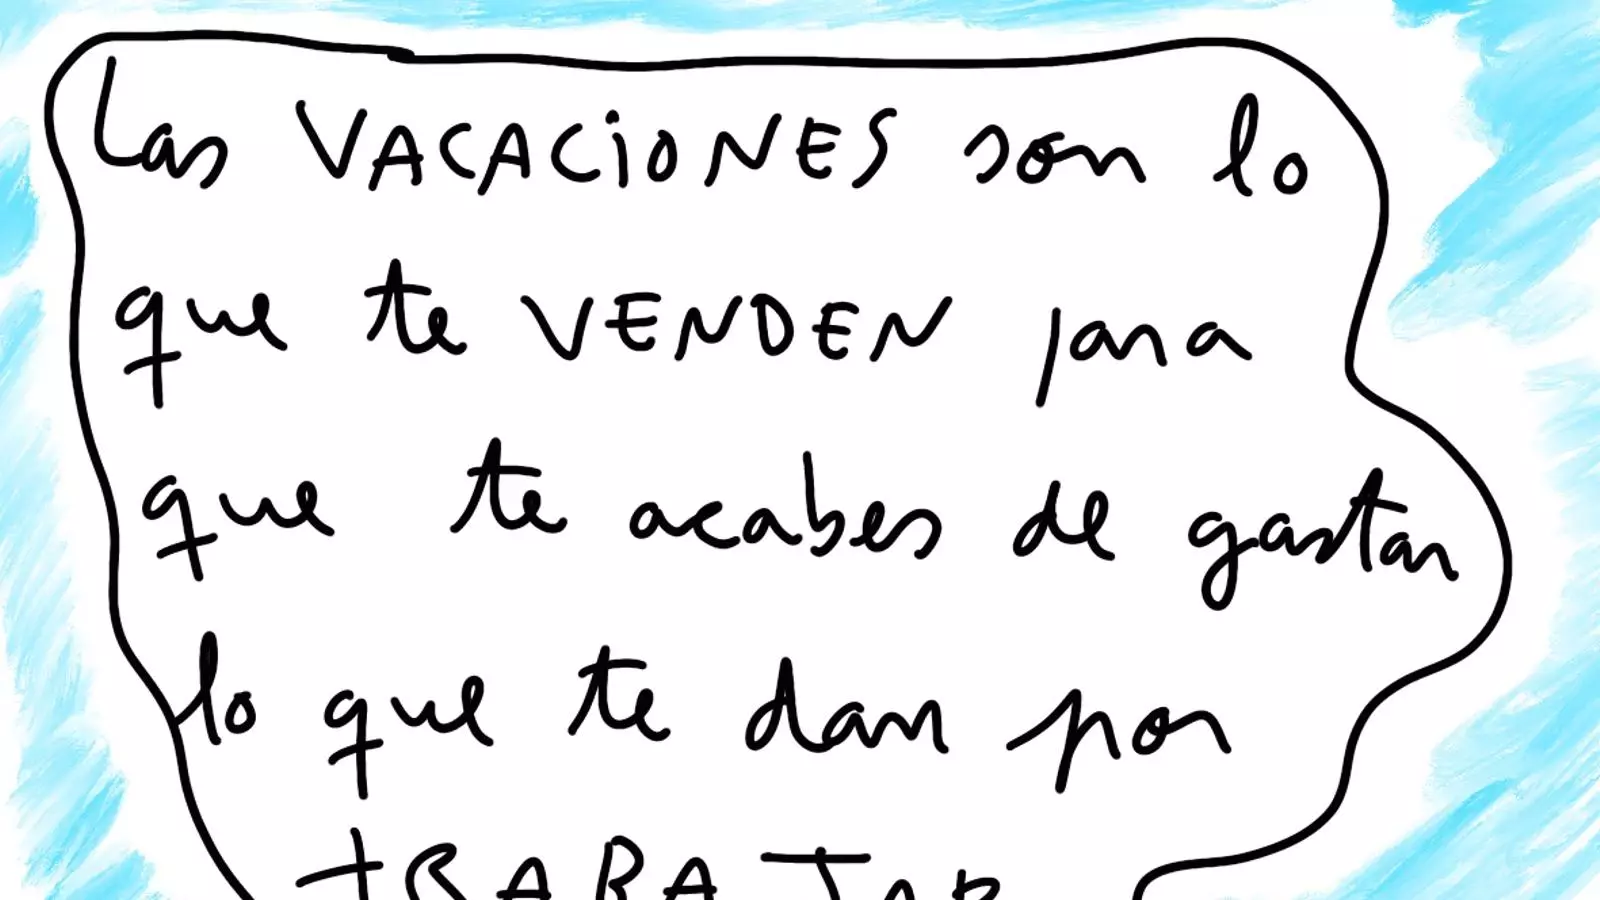 Las VACACiONES son lo
que te VENDEN para
que te acabes de gastar
lo que te dan por
TRABAJAR